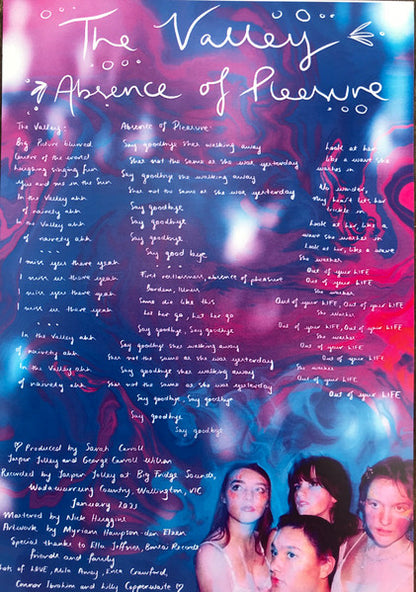 The Valley
Absence of Pleasure
The Valley:
Big Picture blurred
Centre of the world
Laughing singing fun
You and me in the Sun
In the Valley ahh
of naivety ahh
In the Valley ahh
of naivety ahh
I miss you there yeah
I miss u there yeah
I miss you there yeah
I miss u there yeah
In the Valley ahh
of naivety ahh
In the Valley ahh
of naivety ahh
Absence of Pleasure:
Say goodbye shes walking away
Shes not the same as she was yesterday
Say goodbye she walking away
Shes not the same as she was yesterday
Say goodbye
Say goodbye
Say goodbye
Say good bye
First restlessness, absence of pleasure
Sames die like this
Let her go, let her go
Say goodbye, Say goodbye
Say goodbye shes walking away
Shes not the same as she was yesterday
Say goodbye shes walking away
Shes not the same as she was yesterday
Say goodbye, Say goodbye
Say goodbye
Say goodbye
Look at her
Like a wave she
washes in
No wonder,
My heart lets her
trickle in
Look at her, like a
wave she washes in
Look at her, like a wave
She washes
Out of your LIFE
She washes
Out of your LIFE, Out of your LIFE
She washes
Out of your LIFE, Out of your LIFE
She washes
Out of your LIFE
She washes
Out of your LIFE
Out of your LIFE
♡ Produced by Sarah Carroll
Jasper Jolley and George Carroll Wilson
Recorded by Jasper Jolley at Big Fridge Sounds,
Wadawurrung Country, Wallington, VIC
January 2023
Mastered by Nick Huggins
Artwork by Myriam Hampson-den Elzen
Special thanks to Ella Jeffries, Records,
friends and family
Lots of LOVE, Crawford,
Connor Ibrahim and Lilly ♡